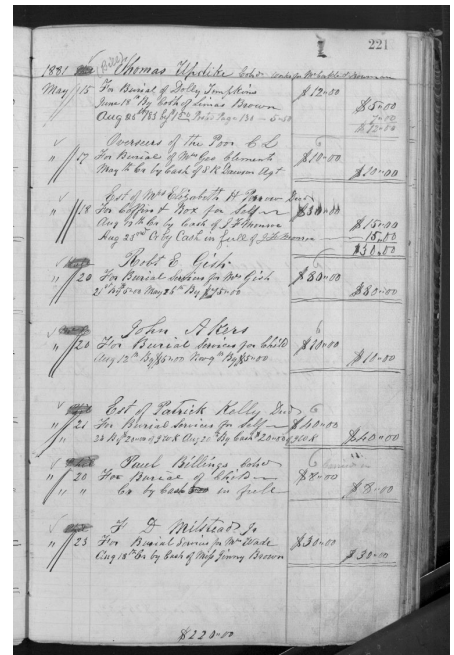 221
1881 (Bill) Thomas Updike Cold
May 15 For Burial of Dolly Simpkins $12.00
June 18 By Cash of Brown $5.00
Aug 25th /83 by Page 130 5.50 7.00
12.00
Overseers of the Poor C L 6
" 17 For Burial of Mrs Geo Clement $10.00
May 17th Cr by Cash of S R Dawson Agt $10.00
Est of Mrs Elizabeth H Decd
" 18 For Coffin & Box for Self $30.00
Aug 20th By Cash of $15.00
Aug 23rd Cr by Cash in full of 15.00
$30.00
Robt E. Gish 6
" 20 For Burial Services for Mrs Gish $80.00
21st By $5.00 May 25th By $75.00 $80.00
John A Kers 6
" 20 For Burial Services for Child $10.00
Aug 12th By $5.00 Nov 9th By $5.00 $10.00
Est of Patrick Kelly Decd 6
" 21 For Burial Services for Self $40.00
23 By 20.00 of Aug 20 By Cash 20.00 of $40.00
Paul Billings Cold 6
" 20 For Burial of Child $8.00
" " Cr by Cash in full $8.00
F D Milstead Jr
" 23 For Burial Services for Mrs Wade $30.00
Aug 18th Cr by Cash of Miss Jenny Brown $30.00
$220.00